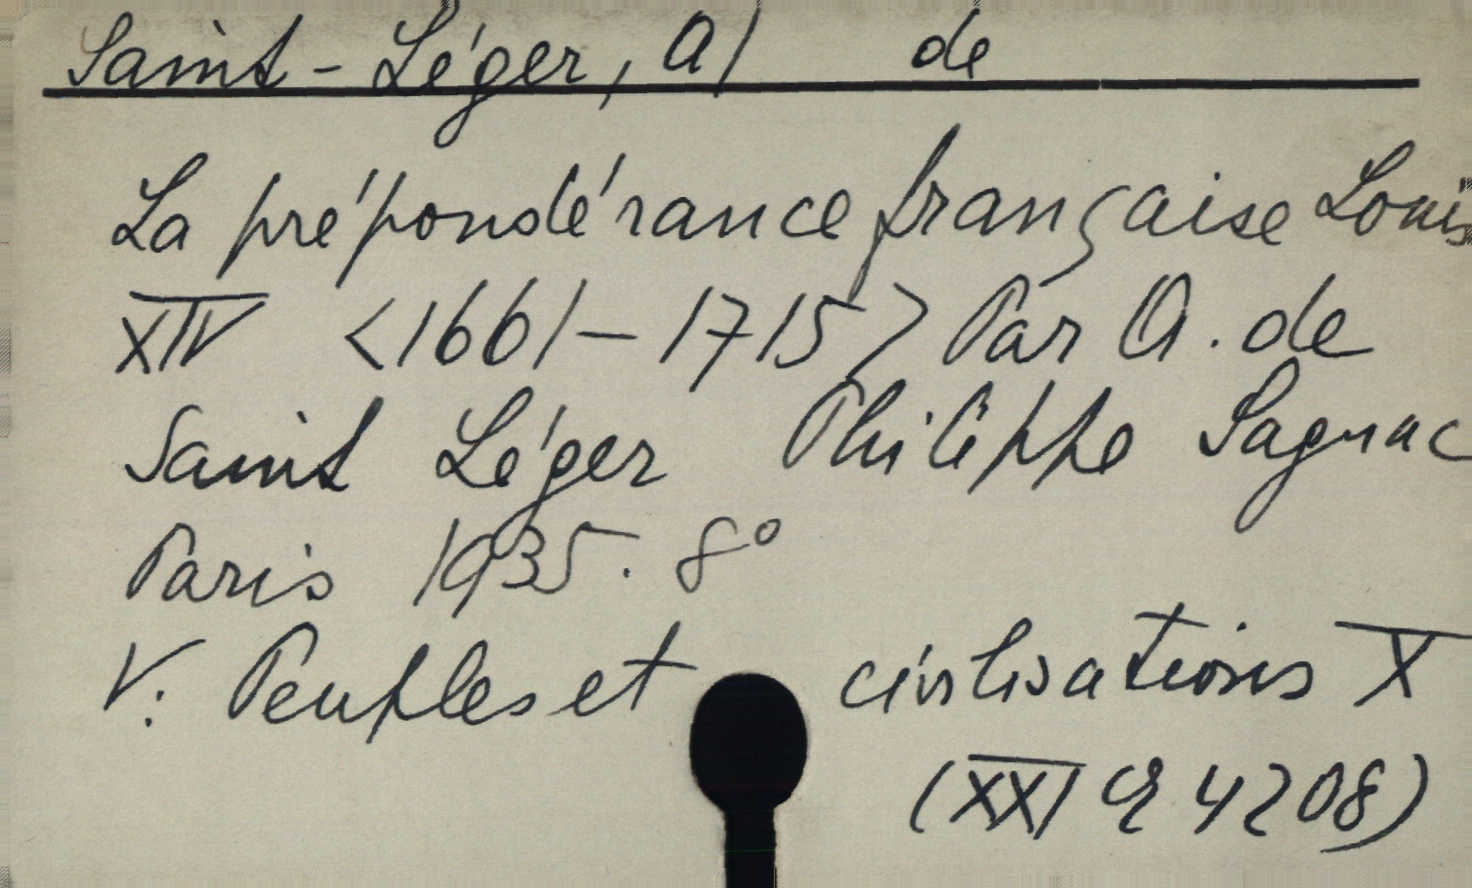 Saint-Léger, A/ de
La prépondérance française Louis
XIV <1661-1715> Par A. de
Saint Léger Philippe Sagnac
Paris 1935. 8°
V: Peuples et civilisations X
(XXI 4208)